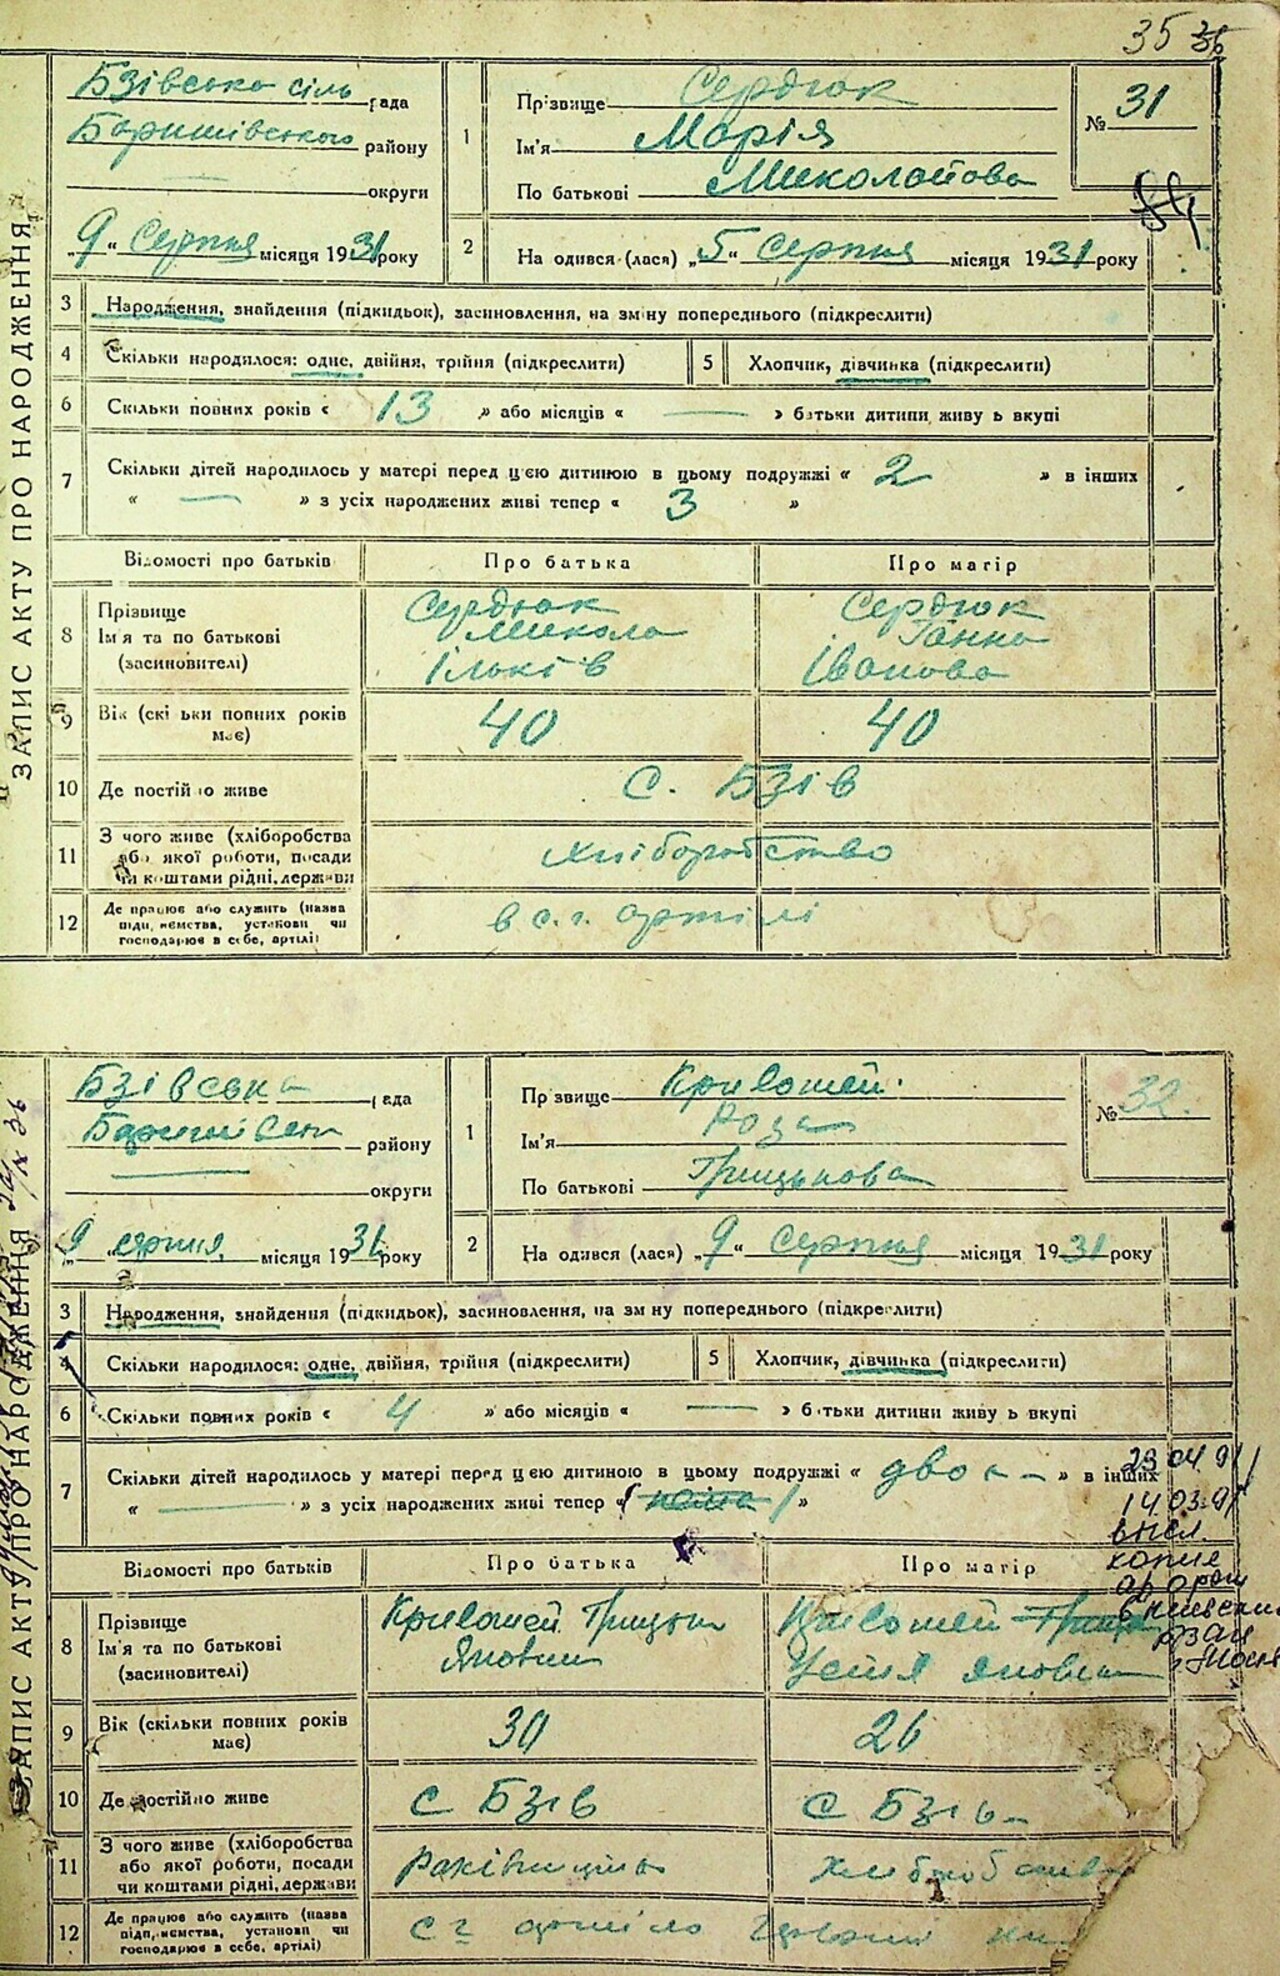 35 36
ЗАПИС АКТУ ПРО НАРОДЖЕННЯ
Бзівська сіль рада
Баришівського району
— округи
„9“ Серпня місяця 1931 року
1
Прізвище Сердюк
Ім'я Марія
По батькові Миколайова
№ 31
2
На одився (лася) „5“ Серпня місяця 1931 року
3 Народження, знайдення (підкидьок), засиновлення, на зміну попереднього (підкреслити)
4 Скільки народилося: одне, двійня, трійня (підкреслити)
5 Хлопчик, дівчинка (підкреслити)
6 Скільки повних років « 13 » або місяців « — » батьки дитини живу ь вкупі
7 Скільки дітей народилось у матері перед цією дитиною в цьому подружжі « 2 » в інших
« — » з усіх народжених живі тепер « 3 »
Відомості про батьків Про батька Про матір
8 Прізвище
Ім'я та по батькові
(засиновителі)
Сердюк
Микола
Ільків
Сердюк
Ганна
Іванова
9 Вік (скі ьки повних років
має)
40 40
10 Де постійно живе с. Бзів
11 З чого живе (хліборобства
або якої роботи, посади
чи коштами рідні, держави
хліборобство
12 Де працює або служить (назва
підприємства, установи чи
господарює в себе, артілі)
в с. г. артілі
ЗАПИС АКТУ ПРО НАРОДЖЕННЯ
Бзівська рада
району
округи
„9“ серпня місяця 1931 року
1
Пр звище Кривошей
Ім'я Роза
По батькові Грицькова
№ 32.
2
На одився (лася) „9“ Серпня місяця 1931 року
3 Народження, знайдення (підкидьок), засиновлення, на зм ну попереднього (підкреслити)
4 Скільки народилося: одне, двійня, трійня (підкреслити)
5 Хлопчик, дівчинка (підкреслити)
6 Скільки повних років « 4 » або місяців « — » б тьки дитини живу ь вкупі
7 Скільки дітей народилось у матері перед цією дитиною в цьому подружжі « двоє — » в інших
« — » з усіх народжених живі тепер « »
23 04 91
14.03.91
копия
Відомості про батьків Про батька Про матір
8 Прізвище
Ім'я та по батькові
(засиновителі)
Кривошей Грицько
Кривошей
9 Вік (скільки повних років
має)
30 26
10 Де постійно живе с Бзів с Бзів
11 З чого живе (хліборобства
або якої роботи, посади
чи коштами рідні, держави
12 Де працює або служить (назва
підприємства, установи чи
господарює в себе, артілі)